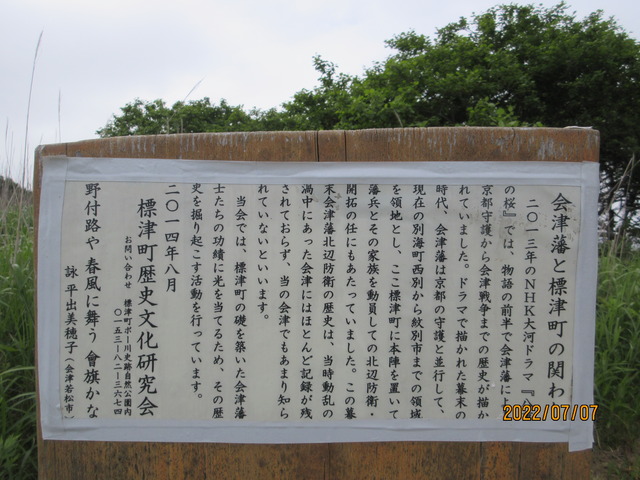 会津藩と標津町の関わ
二〇一三年のNHK大河ドラマ『八
の桜』では、物語の前半で会津藩によ
京都守護から会津戦争までの歴史が描か
れていました。ドラマで描かれた幕末の
時代、会津藩は京都の守護と並行して、
現在の別海町西別から紋別市までの領域
を領地とし、ここ標津町に本陣を置いて
藩兵とその家族を動員しての北辺防衛・
開拓の任にもあたっていました。この幕
末会津藩北辺防衛の歴史は、当時動乱の
渦中にあった会津にはほとんど記録が残
されておらず、当の会津でもあまり知ら
れていないといいます。
当会では、標津町の礎を築いた会津藩
士たちの功績に光を当てるため、その歴
史を掘り起こす活動を行っています。
二〇一四年八月
標津町歴史文化研究会
お問い合わせ 標津町ポー川史跡自然公園内
〇一五三-八二-三六七四
野付路や 春風に舞う 會旗かな
詠 平出美穂子（会津若松市）
2022/07/07